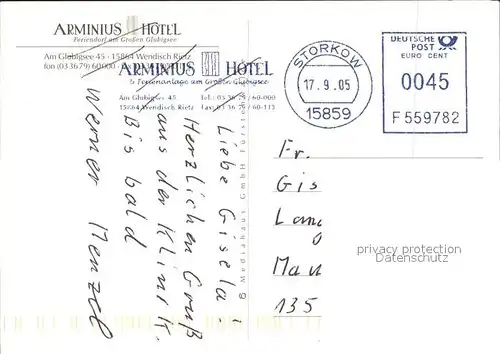 ARMINIUS HOTEL
Feriendorf am Großen Glubigsee
Am Glubigsee 45 · 15864 Wendisch Rietz
fon (03 36 79) 60000
ARMINIUS HOTEL
Ferienanlage am Großen Glubigsee
Am Glubigsee 45 Tel.: 03 36 79 / 60-000
15864 Wendisch Rietz Fax: 03 36 79 / 60-113
STORKOW
17.9.05
15859
DEUTSCHE
POST
EURO CENT
0045
F 559782
Liebe Gisela!
Herzlichen Gruß
aus der Klinik.
Bis bald
Werner Menzel
© Mediahaus GmbH
Fr.
Gis
Lang
Mau
135
privacy protection
Datenschutz